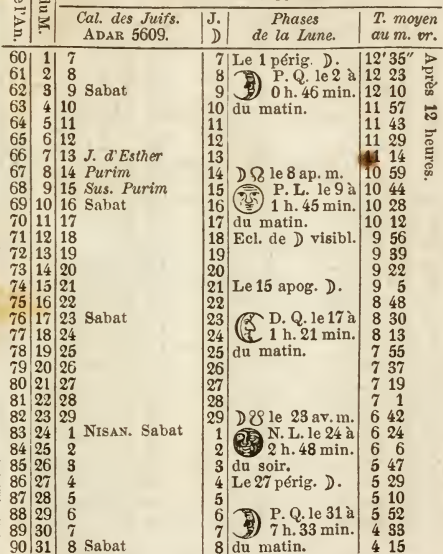 de l'An. du M. Cal. des Juifs. J. Phases T. moyen
ADAR 5609. ☽ de la Lune. au m. vr.
60 1 7 7 Le 1 périg. ☽. 12' 35"
61 2 8 8 P. Q. le 2 à 12 23
62 3 9 Sabat 9 0 h. 46 min. 12 10
63 4 10 10 du matin. 11 57
64 5 11 11 11 43
65 6 12 12 11 29
66 7 13 J. d'Esther 13 11 14
67 8 14 Purim 14 ☽☊ le 8 ap. m. 10 59
68 9 15 Sus. Purim 15 P. L. le 9 à 10 44
69 10 16 Sabat 16 1 h. 45 min. 10 28
70 11 17 17 du matin. 10 12
71 12 18 18 Ecl. de ☽ visibl. 9 56
72 13 19 19 9 39
73 14 20 20 9 22
74 15 21 21 Le 15 apog. ☽. 9 5
75 16 22 22 8 48
76 17 23 Sabat 23 D. Q. le 17 à 8 30
77 18 24 24 1 h. 21 min. 8 13
78 19 25 25 du matin. 7 55
79 20 26 26 7 37
80 21 27 27 7 19
81 22 28 28 7 1
82 23 29 29 ☽☋ le 23 av. m. 6 42
83 24 1 NISAN. Sabat 1 N. L. le 24 à 6 24
84 25 2 2 2 h. 48 min. 6 6
85 26 3 3 du soir. 5 47
86 27 4 4 Le 27 périg. ☽. 5 29
87 28 5 5 5 10
88 29 6 6 P. Q. le 31 à 5 52
89 30 7 7 7 h. 33 min. 4 33
90 31 8 Sabat 8 du matin. 4 15
Après 12 heures.